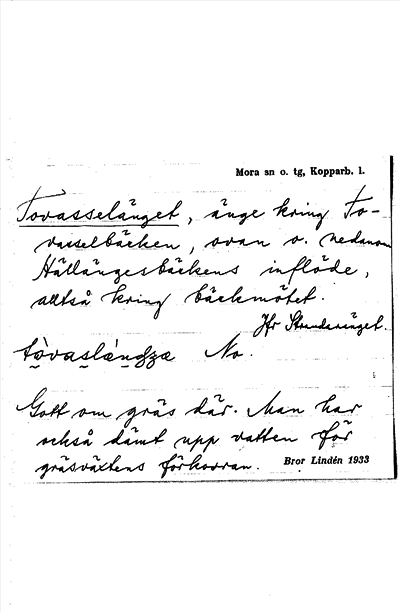 Mora sn o. tg, Kopparb. l.
Tovasselänget, änge kring To-
vasselbäcken, ovan o. nedanom
Hällängesbäckens inflöde,
alltså kring bäckmötet.
Jfr
No.
Gott om gräs där. Man har
också dämt upp vatten för
gräsväxtens förkovran.
Bror Lindén 1933